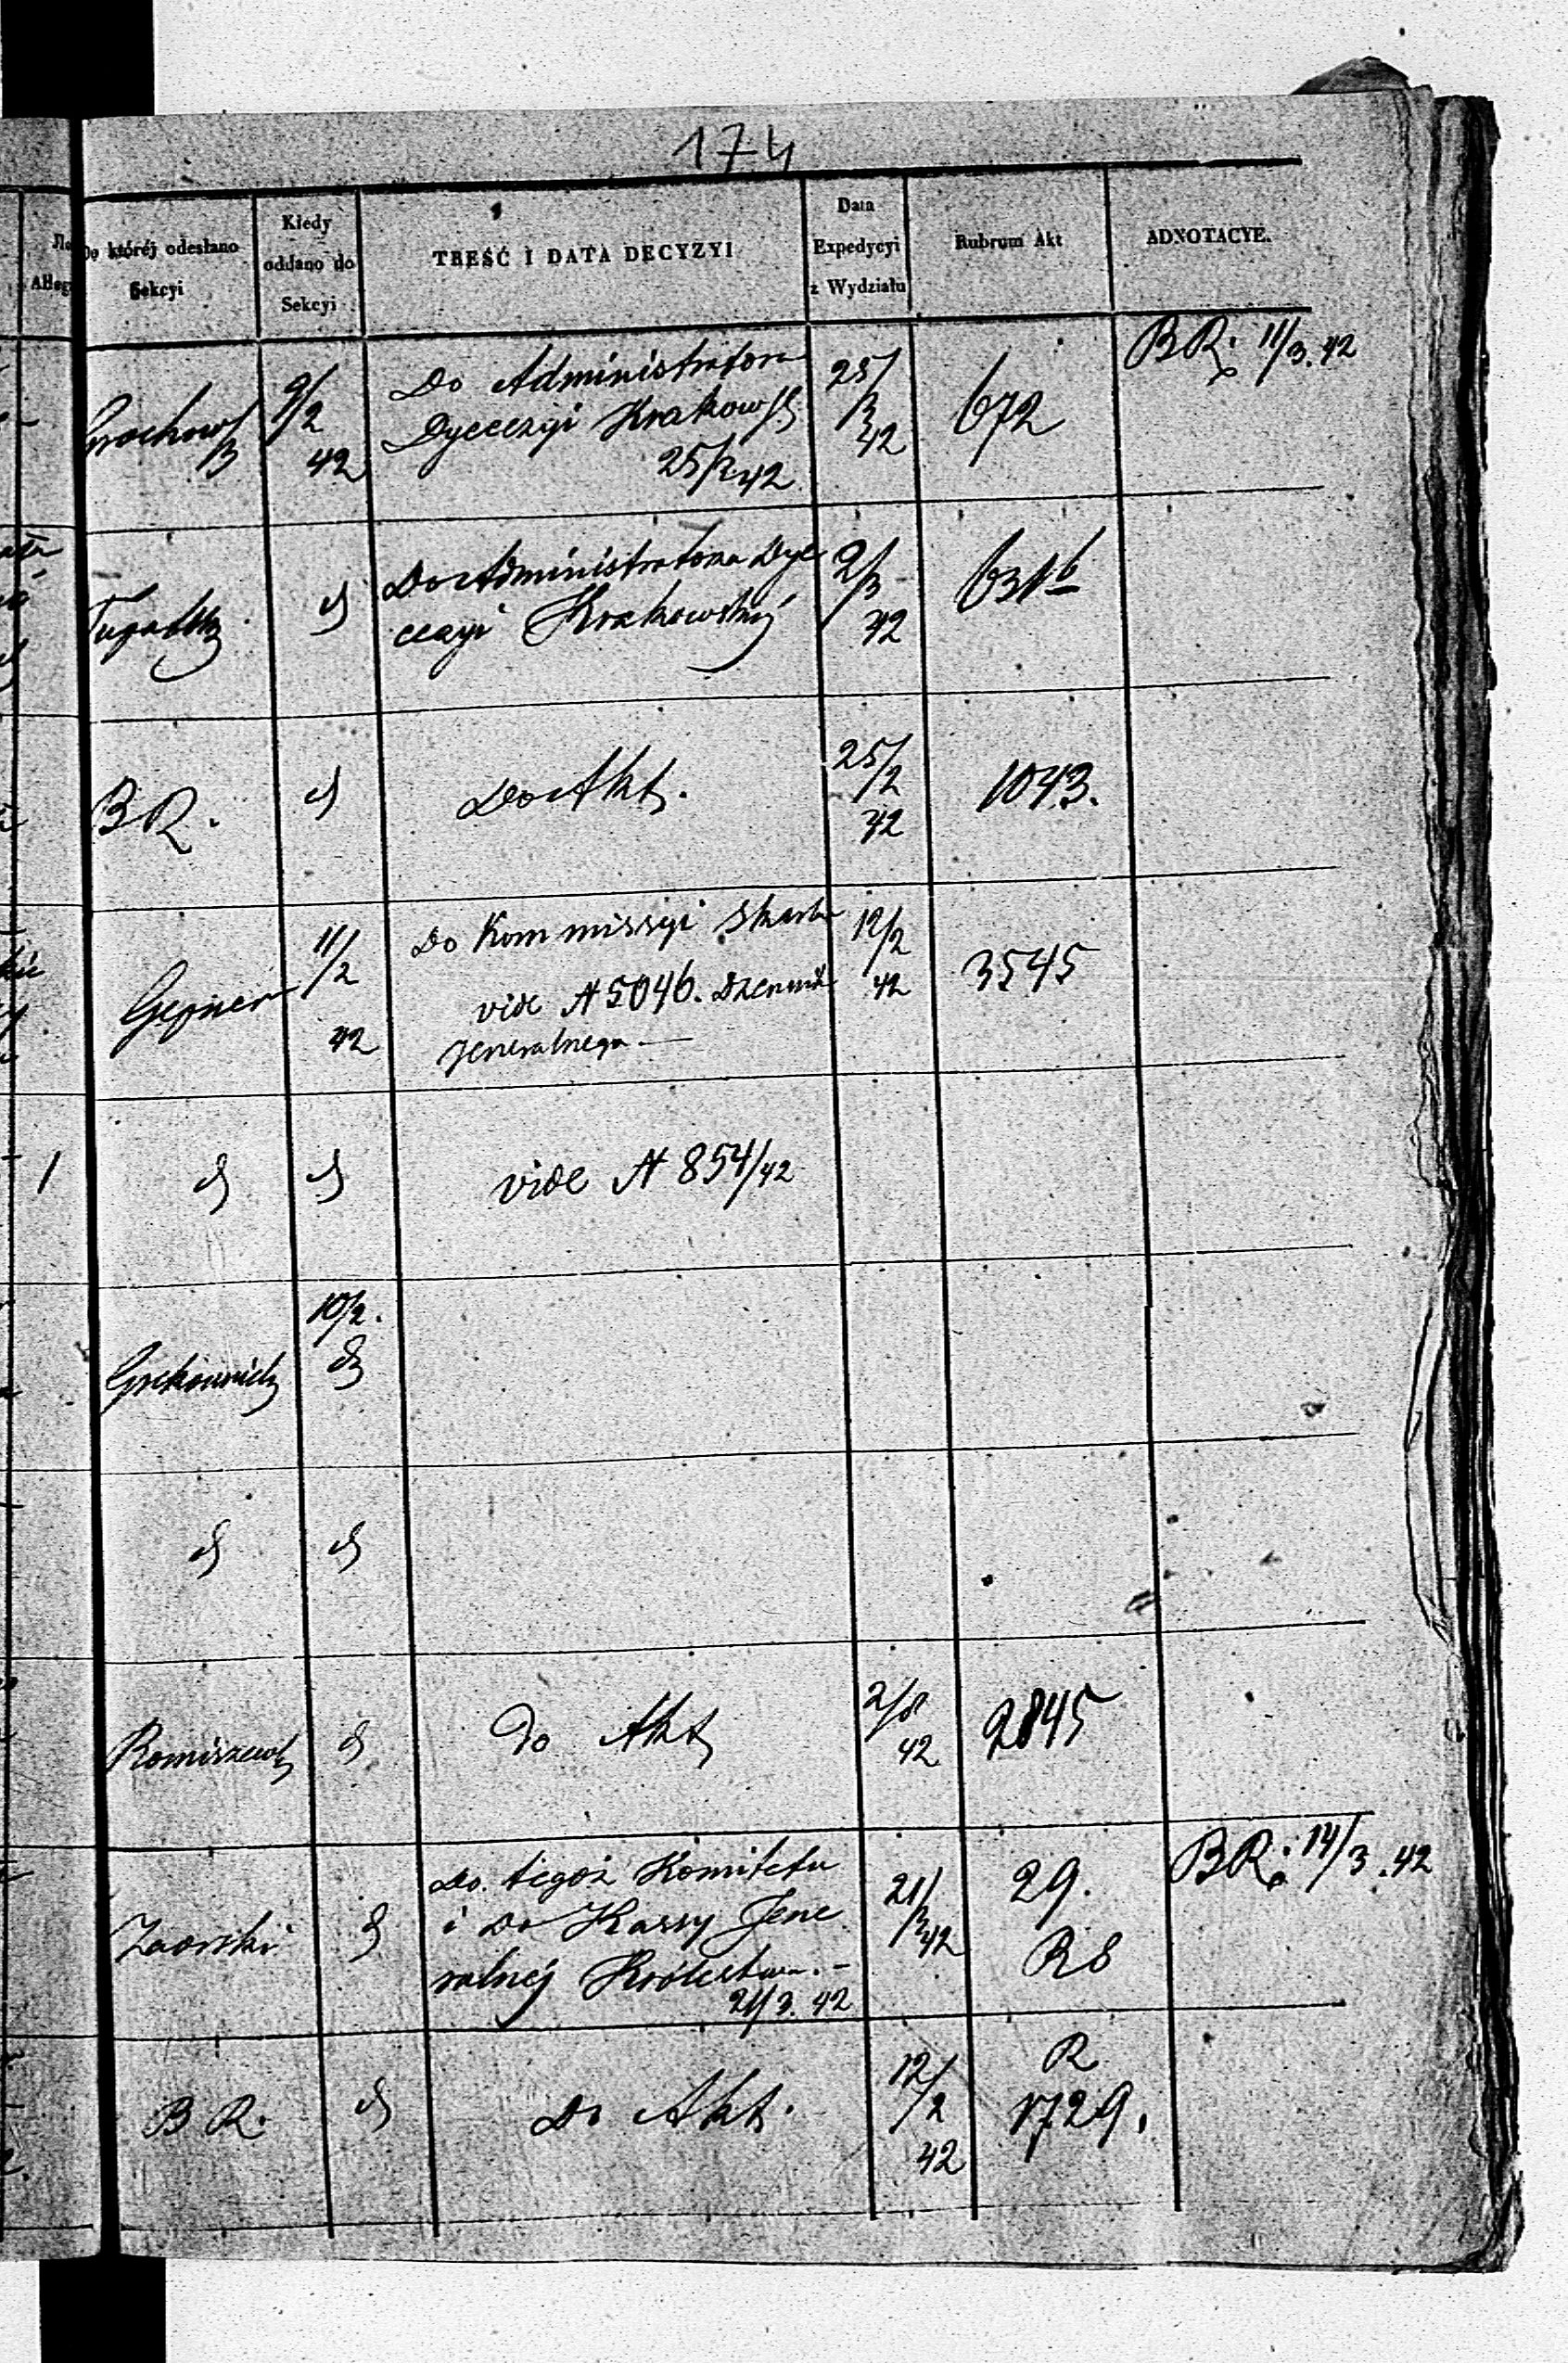 174
Do której odesłano Sekcyi
Kiedy oddano do Sekcyi
TREŚĆ I DATA DECYZYI
Data Expedycyi z Wydziału
Rubrum Akt
ADNOTACYE.
9/2 42
Do Administratora
Dyecezyi Krakows
25/2 42
25/3 42
672
BR. 11/3. 42
Do Administratora Dye
cezyi Krakowskiej
2/3 42
631b
BR.
Do Akt.
25/2 42
1043.
Gepner
11/2 42
Do Kommissyi Skarbu
vide N 5046. Dziennik
Jeneralnego
12/2 42
3545
1
vide N 854/42
10/2.
Do Akt
42
2845
Zaorski
Do tegoż Komitetu
i Do Kassy Jene
ralnej Królestwa. -
21/3. 42
21/3 42
29.
R8
BR. 14/3. 42
BR.
Do Akt.
12/2 42
R
1729.